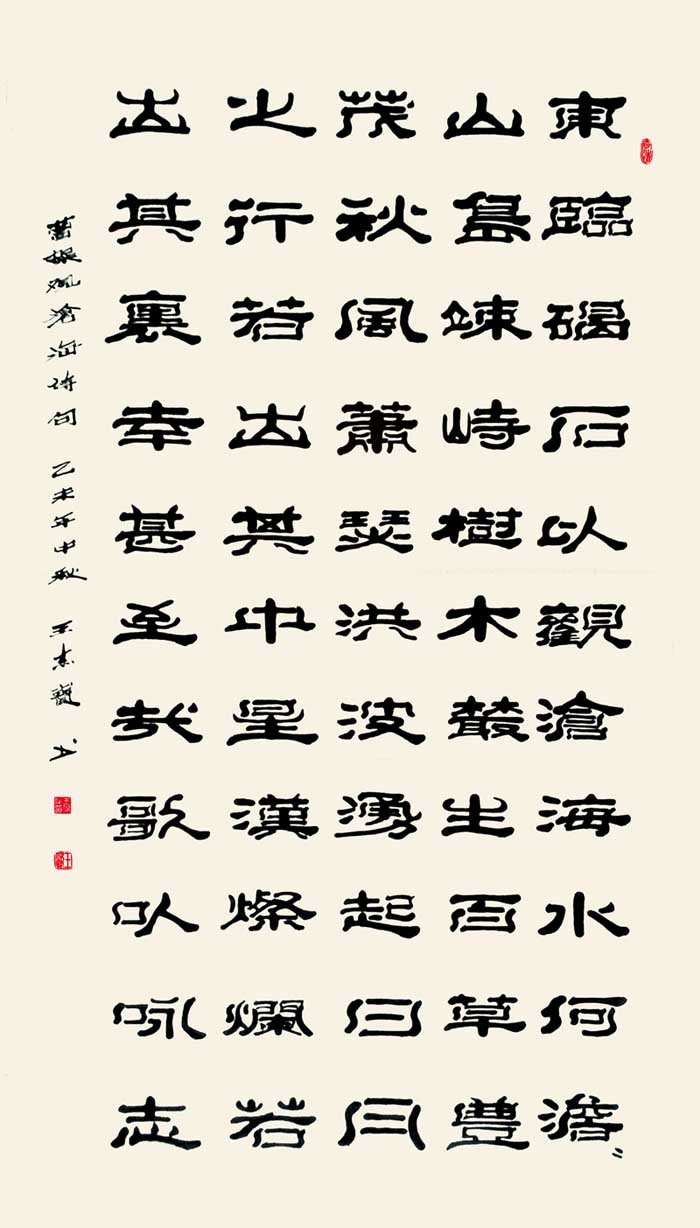 東臨碣石以觀滄海水何澹〻
山島竦峙樹木叢生百草豐
茂秋風蕭瑟洪波湧起日月
之行若出其中星漢燦爛若
出其裏幸甚至哉歌以咏志
曹操观滄海诗句 乙未年中秋 王